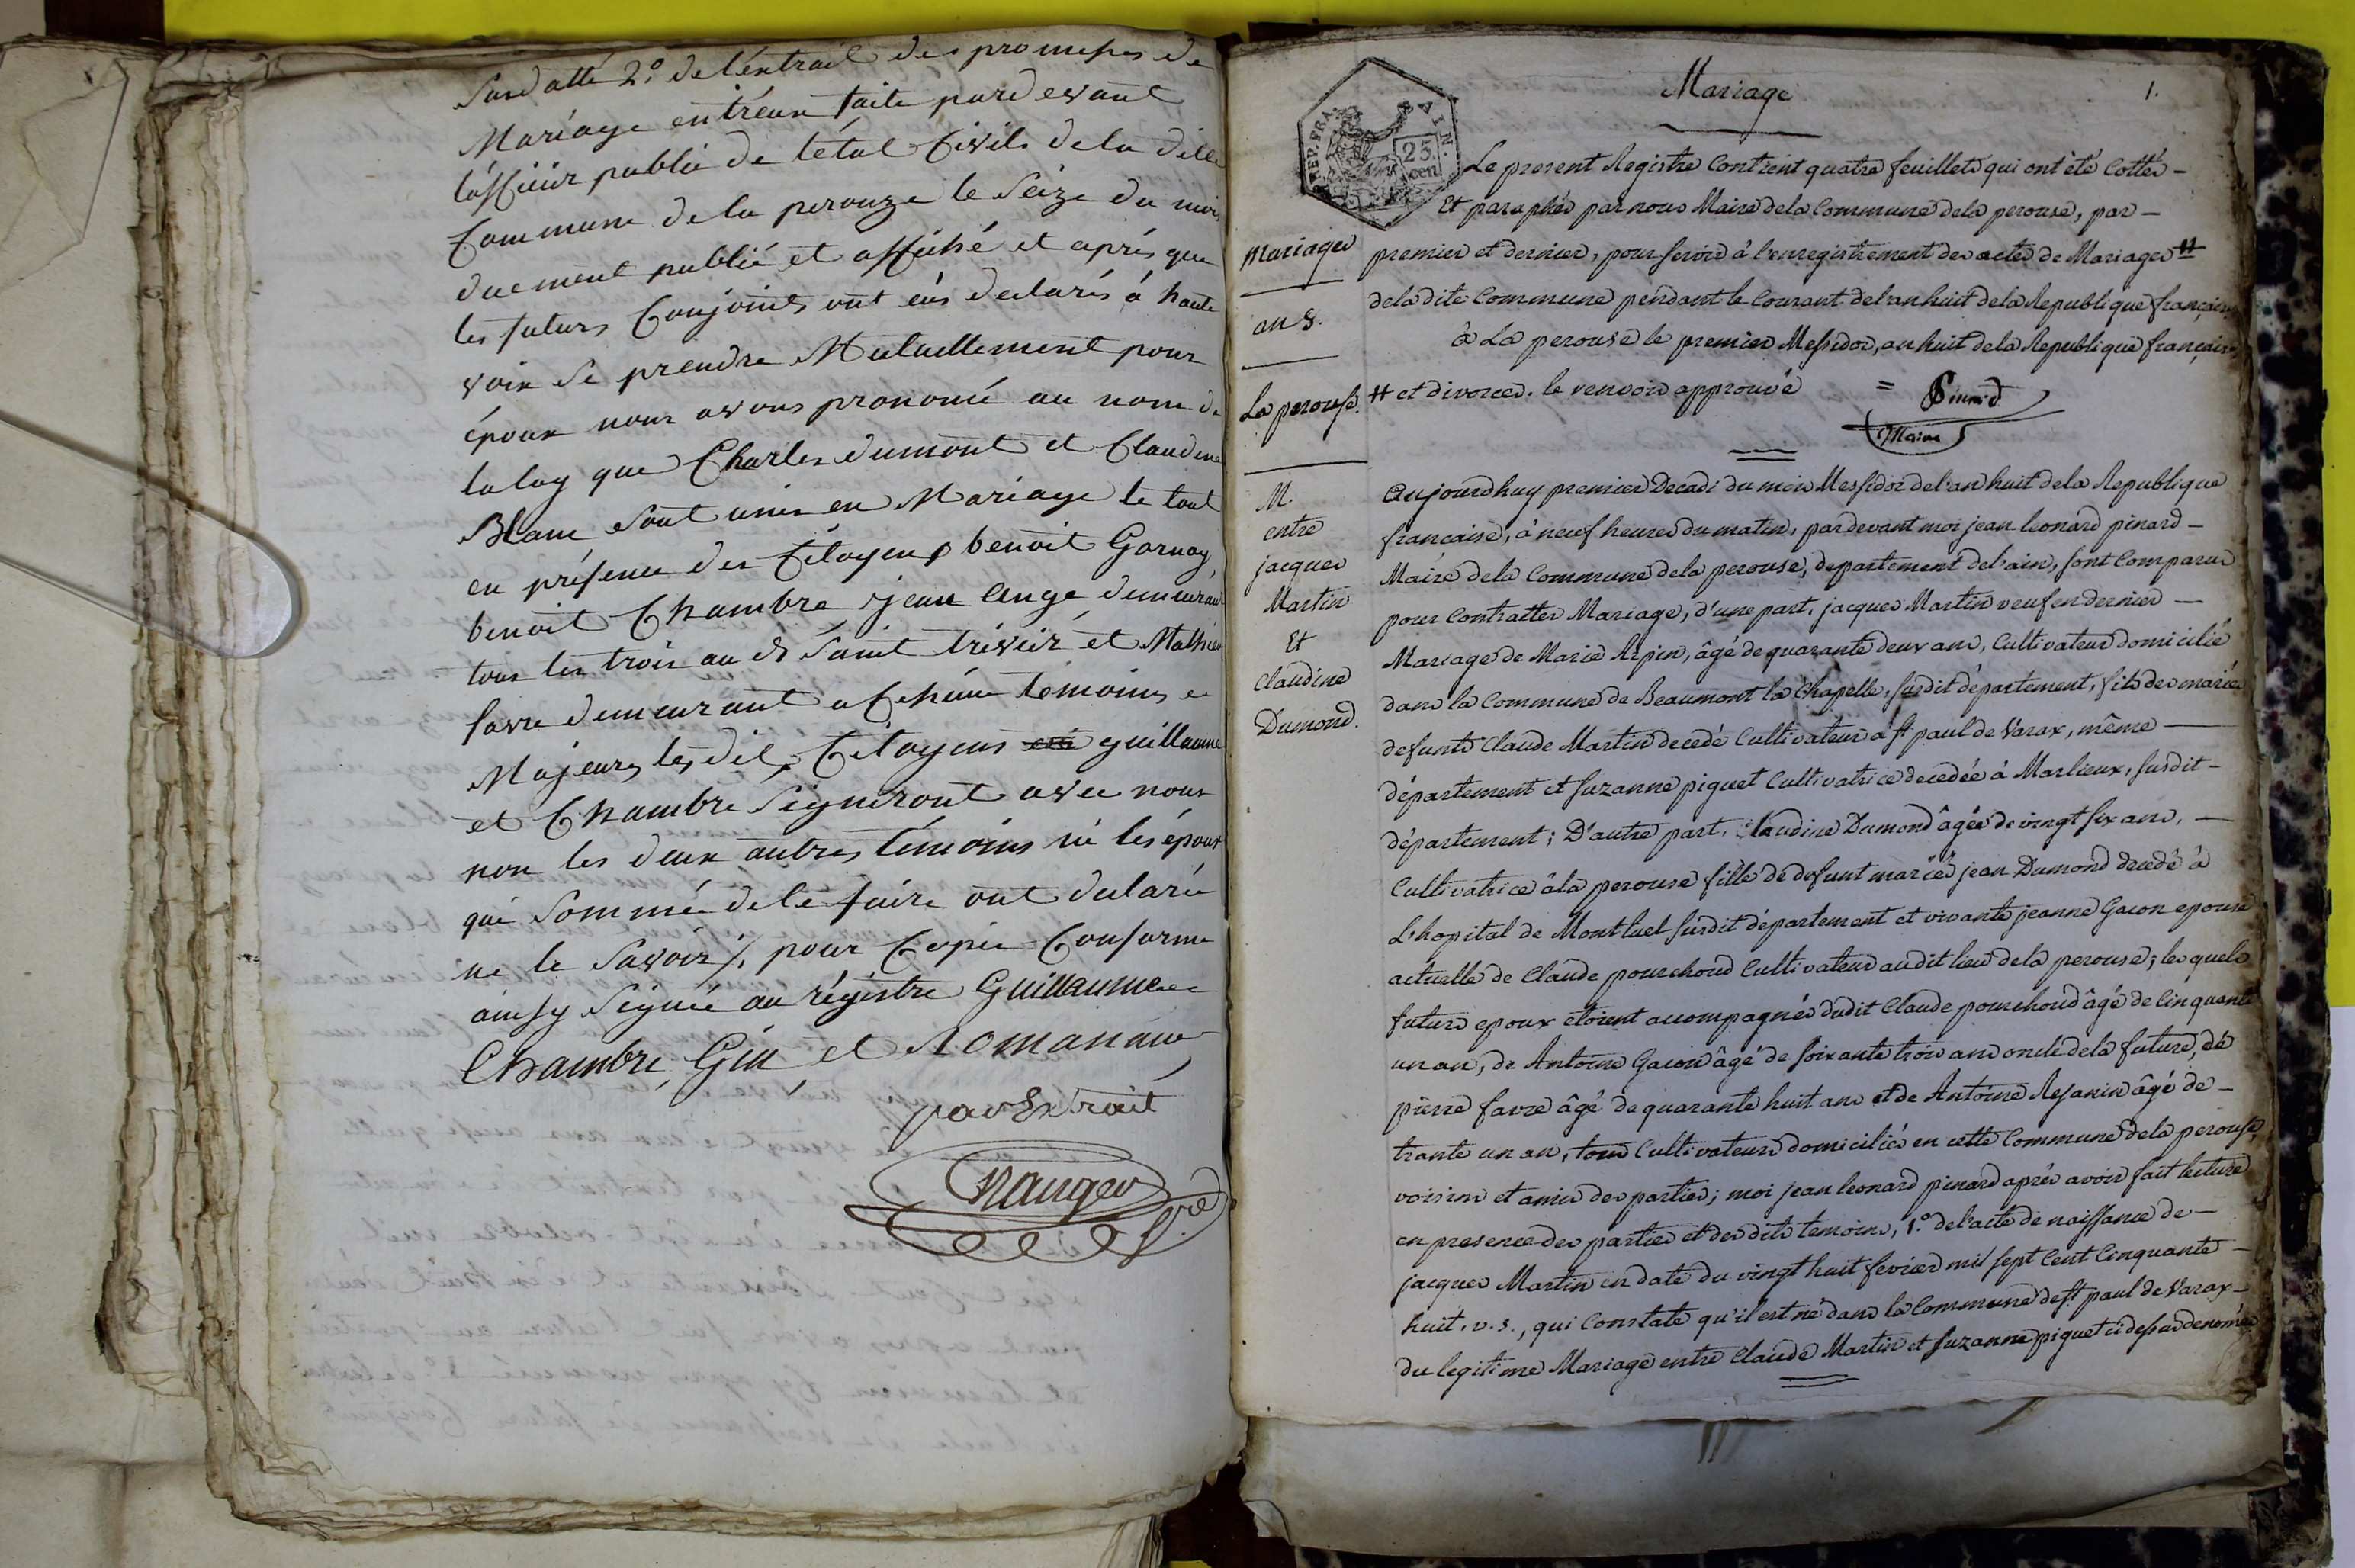 Susdatte 2.° de l'extrait des promesses de
Mariage entreux faite pardevant
lofficier public de létat Civils de la ditte
Commune de la perouze le Seize du mois
duement publié et affiché et aprés que
les futurs Conjoints ont eus declarés á haute
voix Se prendre Mutuellement pour
époux nous avons prononcé au nom de
la loy que Charles dumont et Claudine
Blanc Sont unis en Mariage le tout
en présence des Citoyens benoit Garnay,
benoit Chambre, jean Ange demeurant
tous les trois au dt Saint trivier et Mathieu
favre demeurant a Chéine temoins
Majeurs lesdits Citoyens guillaume
et Chambre Signeront avec nous
non les deux autres témoins ni les époux
qui Sommés de le faire ont declarés
ne le Savoir ./. pour Copie Conforme
ainsy Signée au régistre Guillaume
Chambre, Gin, et Romanans
par Extrait
Naugev
Mariage
1.
REP. FRA. AIN.
25
cen
Le present Registre Contient quatre feuillets qui ont été Cottés -
Et paraphés par nous Maire de la Commune de la perouse, par -
premier et dernier, pour servir à l'enregistrement des actes de Mariages #
de la dite Commune pendant le Courant de l'an huit de la Republique française
à La perouse le premier Messidor, an huit de la Republique française
# et divorces. le renvoir approuvé = Pinard
Maire
Mariages
an 8.
La perouse.
M.
entre
jacques
Martin
Et
Claudine
Dumond.
Aujourdhuy premier Decadi du mois Messidor de l'an huit de la Republique
française, à neuf heures du matin, pardevant moi jean leonard pinard -
Maire de la Commune de la perouse, departement de l'ain, sont Comparus
pour Contracter Mariage, d'une part, jacques Martin veuf en dernier -
Mariage de Marie Arpin, âgé de quarante deux ans, Cultivateur domicilié
dans la Commune de Beaumont la Chapelle, susdit département, fils des mariés
defunts Claude Martin decedé Cultivateur à St paul de Varax, même -
département et suzanne piquet Cultivatrice decedée à Marlieux, susdit -
département; D'autre part, Claudine Dumond âgée de vingt six ans, -
Cultivatrice à la perouse fille de defunt marié jean Dumond decedé à
L'hopital de Montluel susdit département et vivante jeanne Gacon epouse
actuelle de Claude pourchoud Cultivateur audit lieu de la perouse; lesquels
futurs epoux etoient accompagnés dudit Claude pourchoud âgé de Cinquante
un an, de Antoine Gacon âgé de soixante trois ans oncle de la future, de
pierre favre âgé de quarante huit ans et de Antoine Rejanin âgé de -
trante un an, tous Cultivateurs domiciliés en cette Commune de la perouse,
voisins et amis des parties; moi jean leonard pinard aprés avoir fait lecture
en presence des parties et des dits temoins, 1.° de l'acte de naissance de -
jacques Martin en date du vingt huit fevrier mil sept Cent Cinquante -
huit. v. s., qui Constate qu'il est né dans la Commune de St paul de Varax -
du legitime Mariage entre Claude Martin et suzanne piquet ci dessus denomés